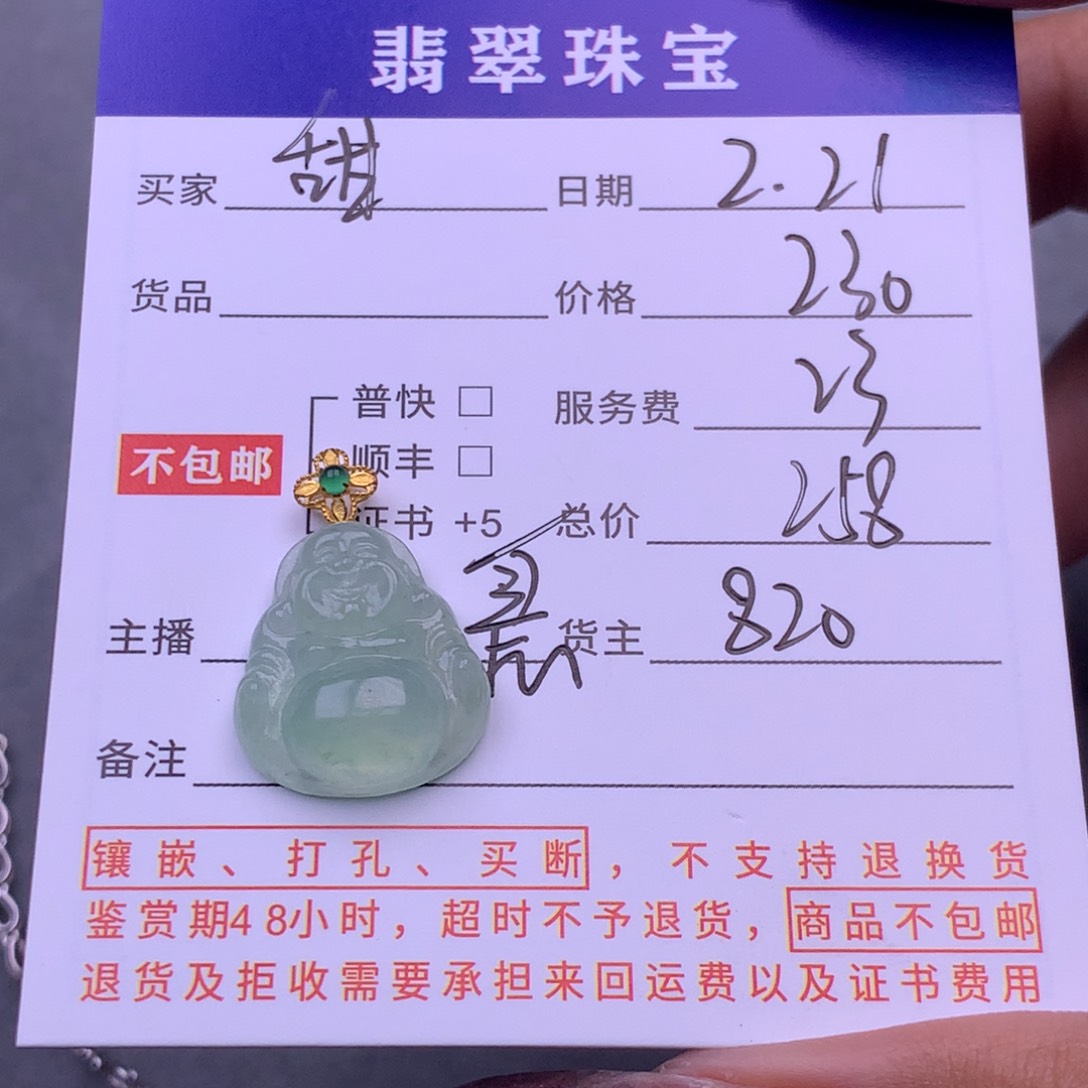 翡翠珠宝
买家 甜 日期 2.21
货品 价格 230
普快 □ 服务费 23
不包邮 顺丰 □
证书 +5 总价 258
主播 货主 820
备注
镶嵌、打孔、买断，不支持退换货
鉴赏期48小时，超时不予退货，商品不包邮
退货及拒收需要承担来回运费以及证书费用